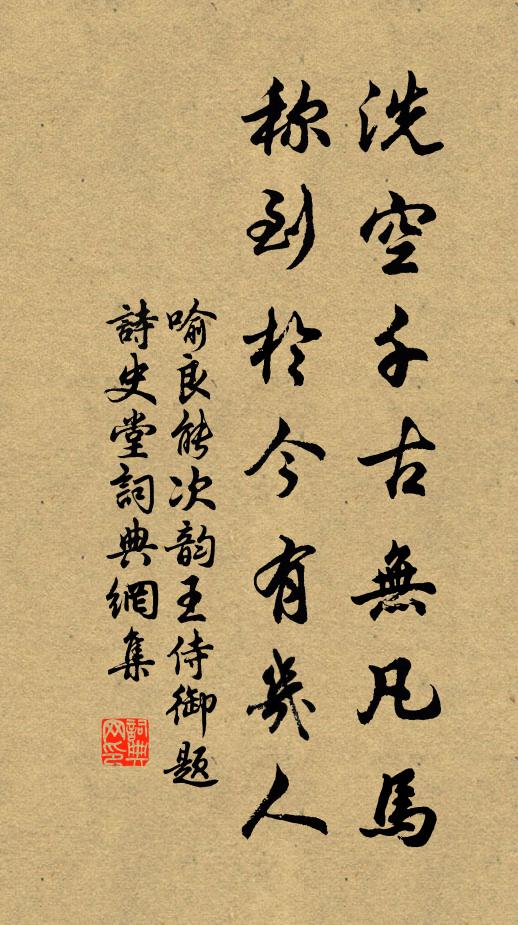 洗空千古無凡馬
称到於今有幾人
喻良能次韵王侍御題
詩史堂詞典網集
詞典网